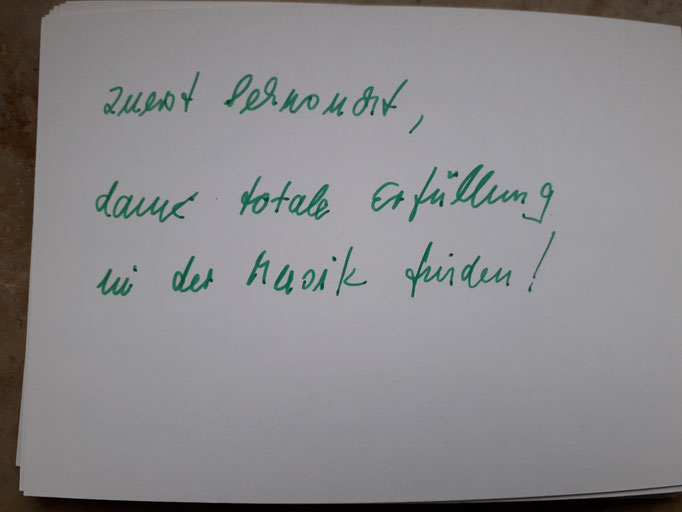 zuerst Sehnsucht,
dann totale Erfüllung
in der Musik finden!